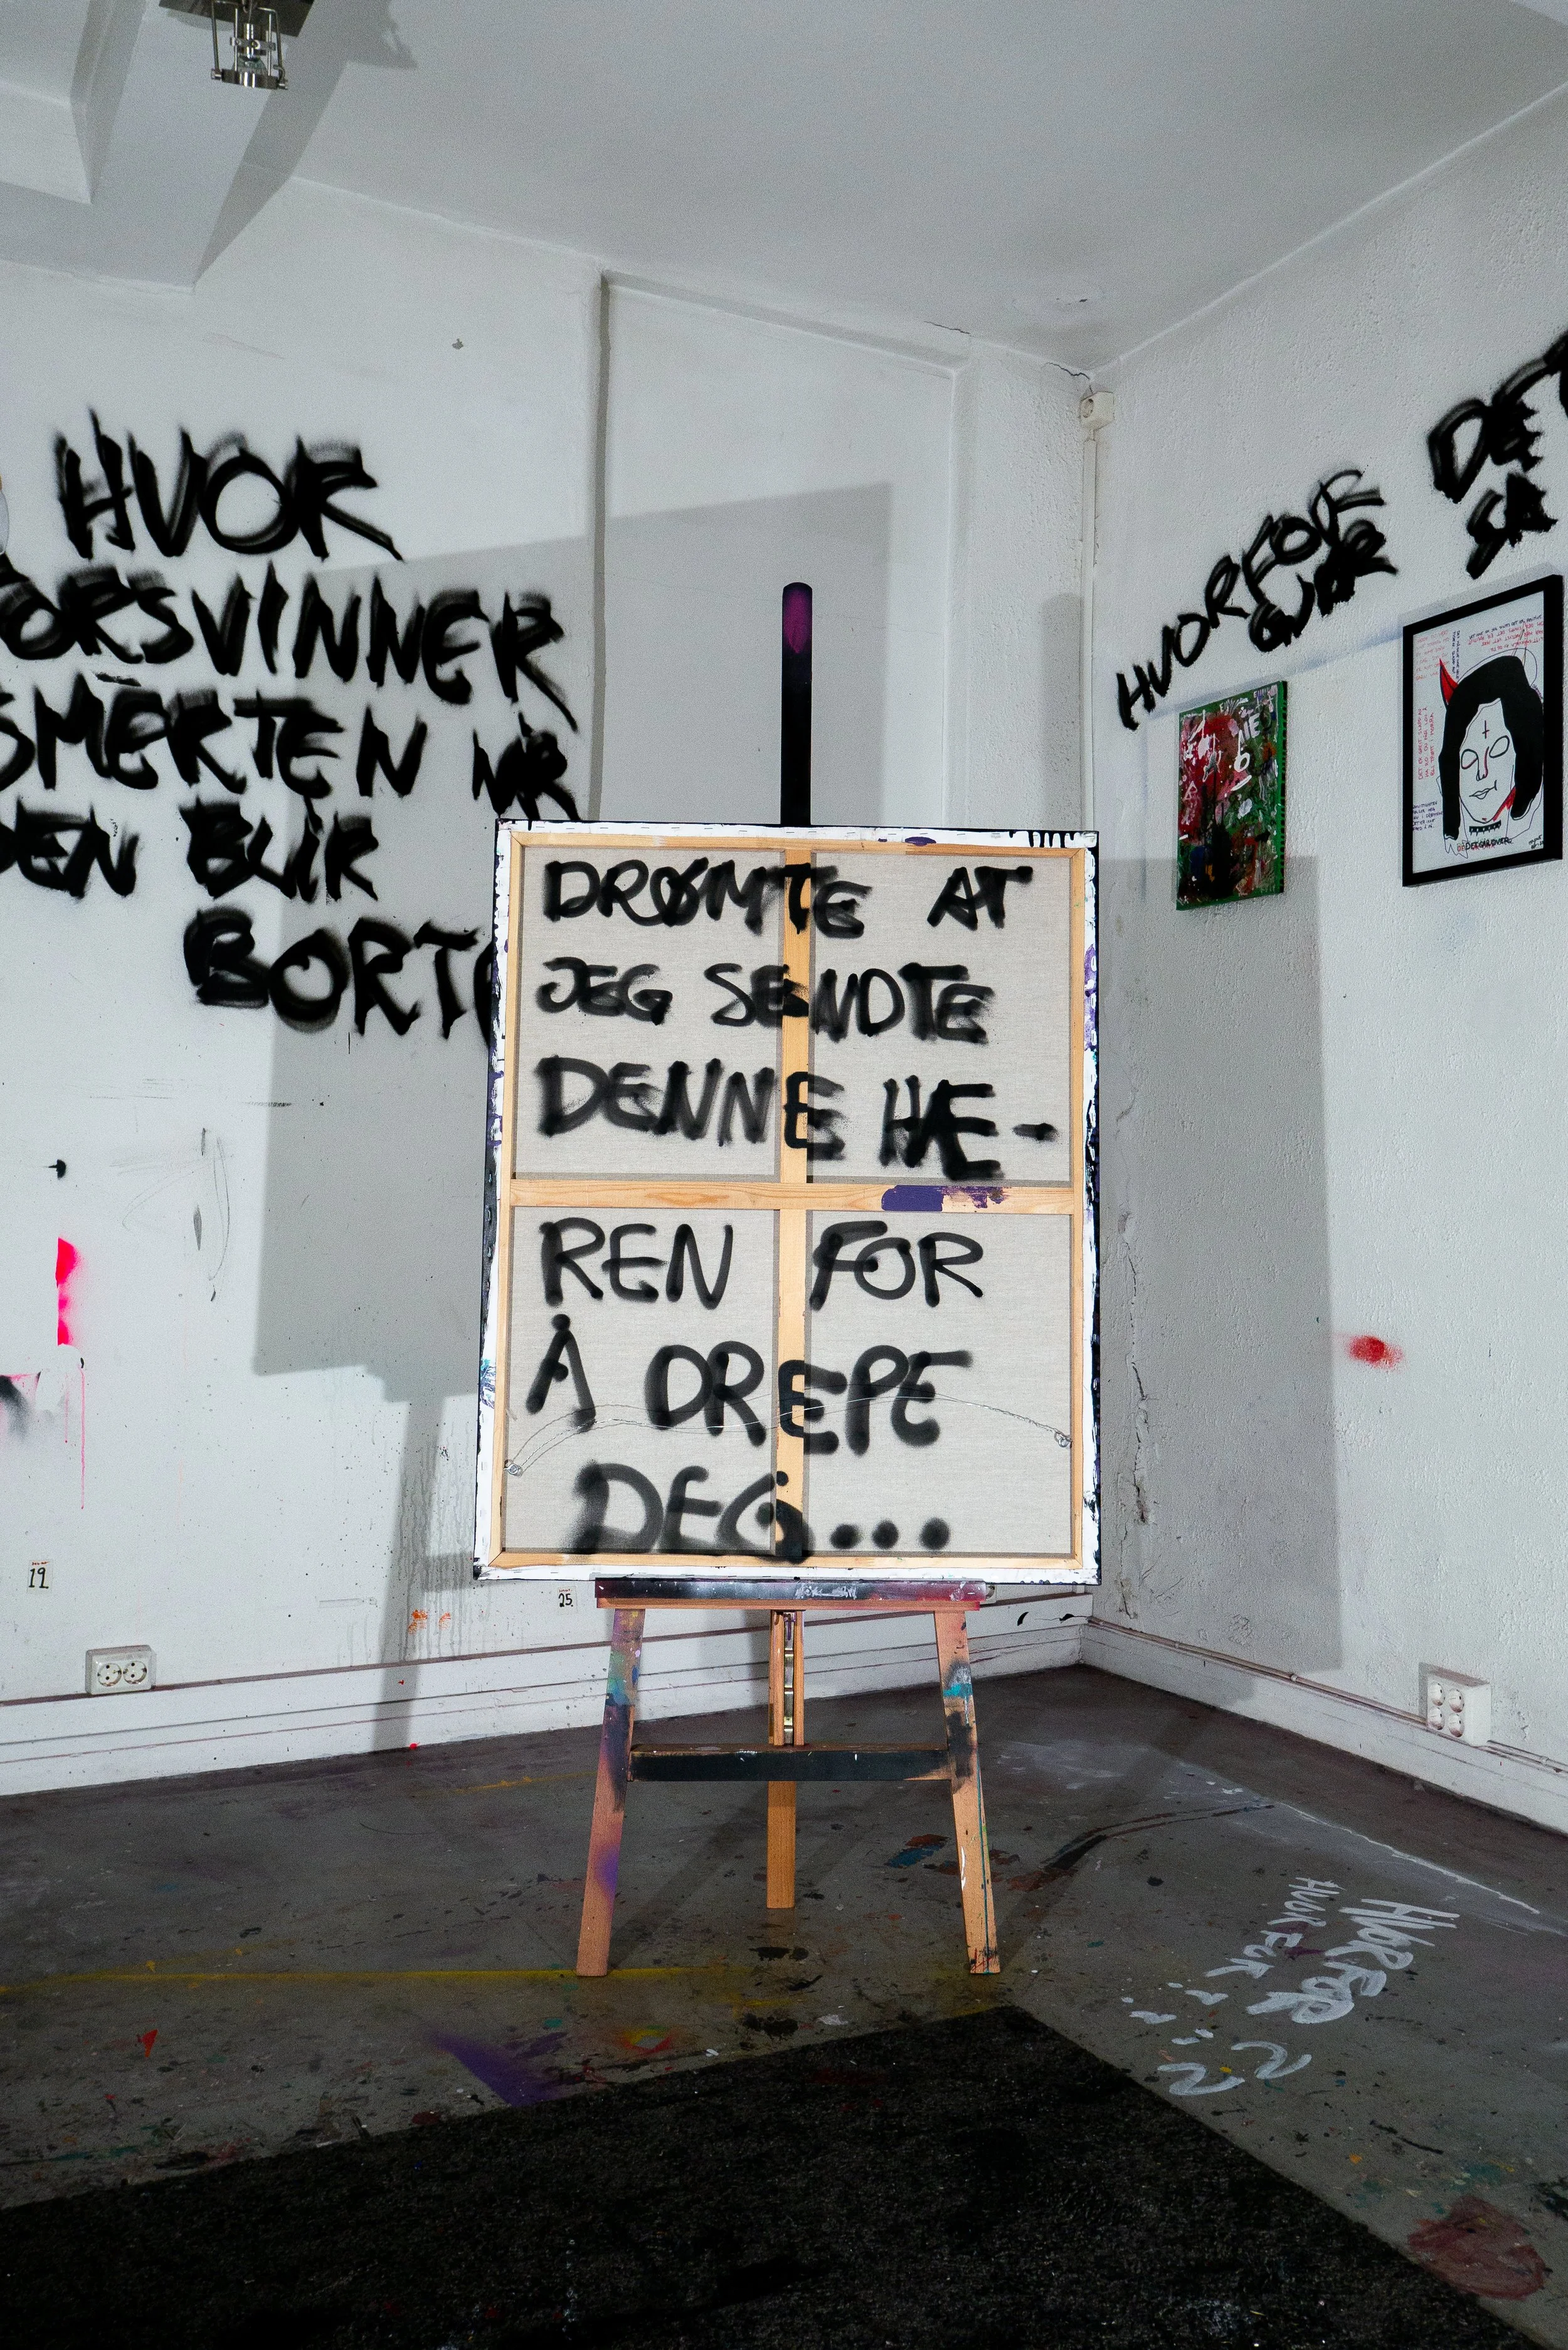 HVOR
FORSVINNER
SMERTEN NÅR
DEN BLIR
BORTE
DRØMTE AT
JEG SENDTE
DENNE HÆ-
REN FOR
Å DREPE
DEG...
HVORFOR
GJØR
DET
SÅ
19.
25.
HVORFOR
HVORFOR